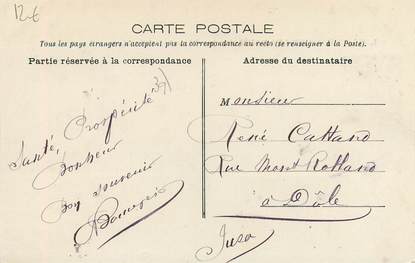 12-€
CARTE POSTALE
Tous les pays étrangers n'acceptent pas la correspondance au recto (se renseigner à la Poste).
Partie réservée à la correspondance
Adresse du destinataire
Santé, Prospérité
Bonheur
Bon souvenir
Monsieur
René Cattand
Rue Mont Rolland
à Dôle
Jura